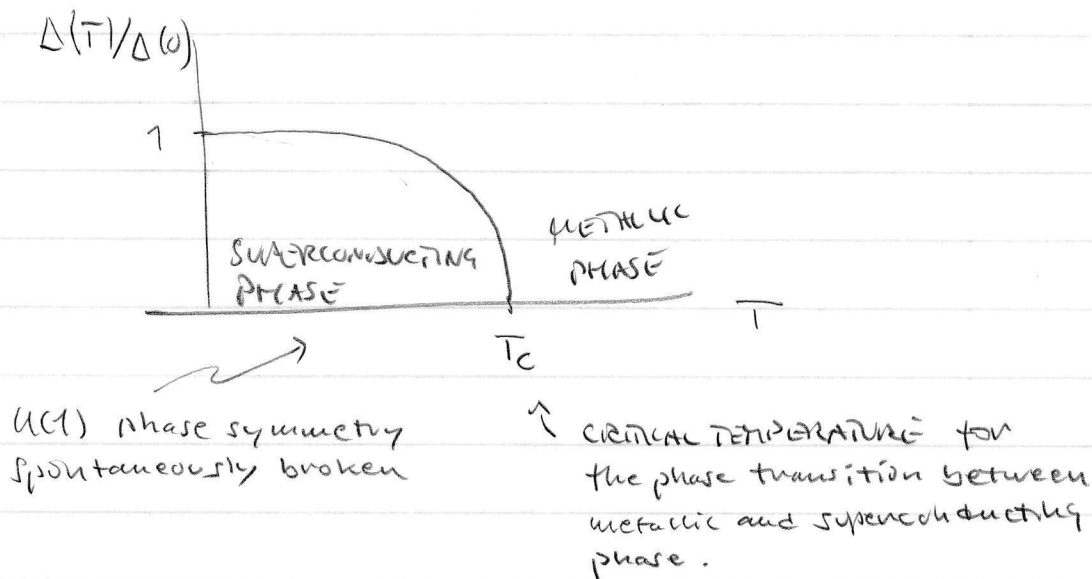 Δ(T)/Δ(0)
1
SUPERCONDUCTING
PHASE
METALLIC
PHASE
T
Tc
U(1) phase symmetry
spontaneously broken
↑ CRITICAL TEMPERATURE for
the phase transition between
metallic and superconducting
phase.